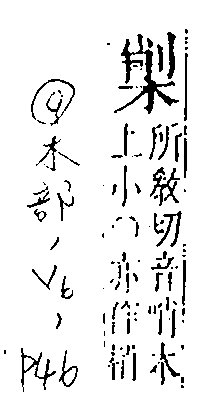 所敎切音哨木
上小〇亦作梢
⑨木部,V6,
P46